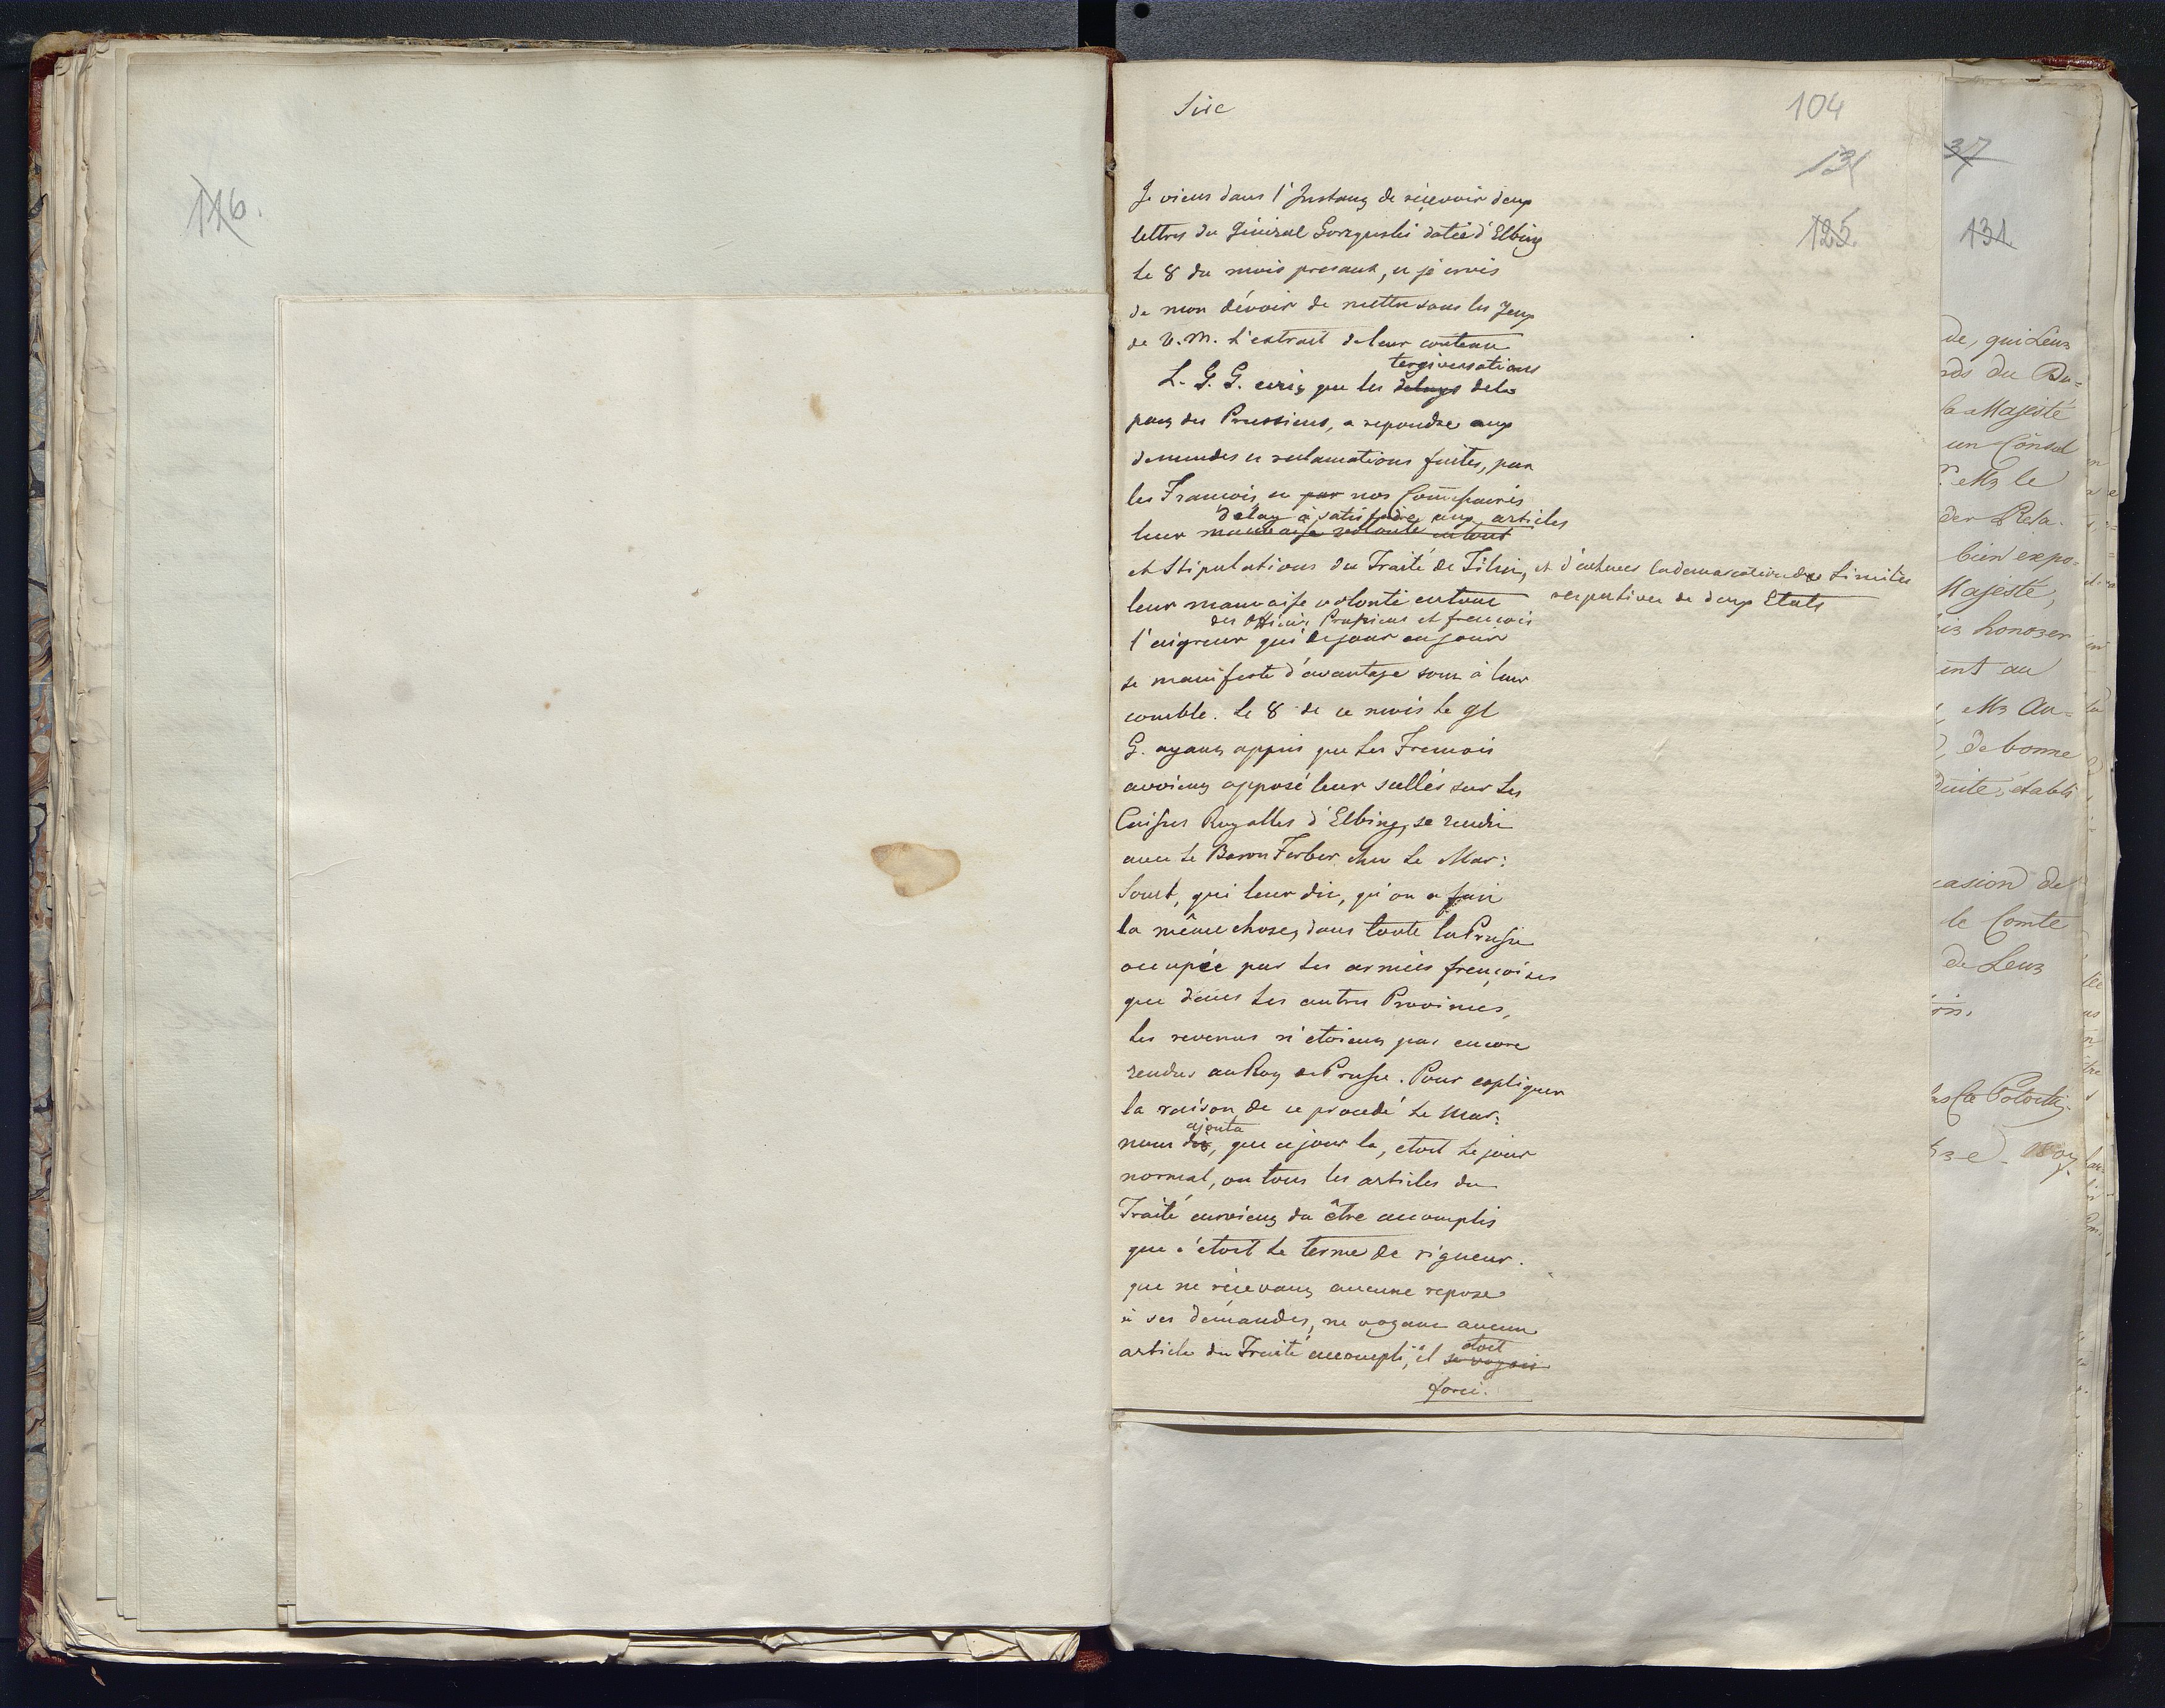 116.
Sire
104
131
125.
Je viens dans l'Instant de réçevoir deux
lettres du Géniral Gorzynski datéé d'Elbing
le 8 du mois presant, et je crois
de mon dévoir de mettre sous les Jeux
de V. M. l'extrait de leur contenu
tergiversations
L. G. G. ecrit que les delays de la
part des Prussiens, a repondre aux
demandes et reclamations faites, par
les Francois et par nos Commissaires
delay à satisfaire aux articles
leur mauvaise volonté en tout
et Stipulations du Traité de Tilsit, et d'achever la demarcation des Limites
respectives de deux Etats
leur mauvaise volonté en tout
des Officiers Prussiens et francois
l'aigreur qui de jour en jour
se manifeste d'avantage sont à leur
comble. Le 8 de ce mois le gl
G. ayant appris que les Francois
avoient apposé leur scellés sur les
Caisses Royalles d'Elbing, se rendit
avec le Baron Ferber chez le Mar:
Soult, qui leur dit, qu'on a fait
la même chose, dans toute la Prusse
occupéé par les armées françoises
que dans les autres Provinces,
les revenus n'etoient pas encore
rendus au Roy de Prusse. Pour expliquer
la raison de ce procedé le Mar:
ajouta
nous dit, que ce jour la, etoit le jour
normal, ou tous les articles du
Traité auroient du être accomplis
que c'etoit le terme de rigueur.
que ne réçevant aucune repose
à ses demandes, ne voyant aucun
etoit
article du Traité accompli, il se voyoit
forcé.
37
131.
de, qui Leurs
rds du Du=
la Majesté
un Consul
Mr le
der Resa.
bien expo=
Majesté,
honorer
ent au
Mr Au=
de bonne
duite, établi
casion de
le Comte
de Leurs
Potocki.